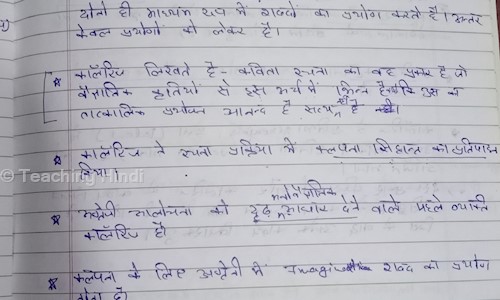 दोनों ही माध्यम रूप में शब्दों का प्रयोग करते है। अन्तर
केवल प्रयोगों को लेकर है।
* कॉलरिज लिखते है - कविता रचना का वह प्रकार है जो
वैज्ञानिक कृतियों से इस अर्थ में भिन्न है कि इस का
तात्कालिक प्रयोजन आनन्द है सत्य नही।
* कॉलरिज ने रचना प्रक्रिया में कल्पना सिद्धान्त का प्रतिपादन
किया।
© Teaching Hindi
* अंग्रेजी आलोचना को दृढ़ मनोवैज्ञानिक आधार देने वाले पहले व्यक्ति
कॉलरिज है।
* कल्पना के लिए अंग्रेजी में शब्द का प्रयोग
होता है